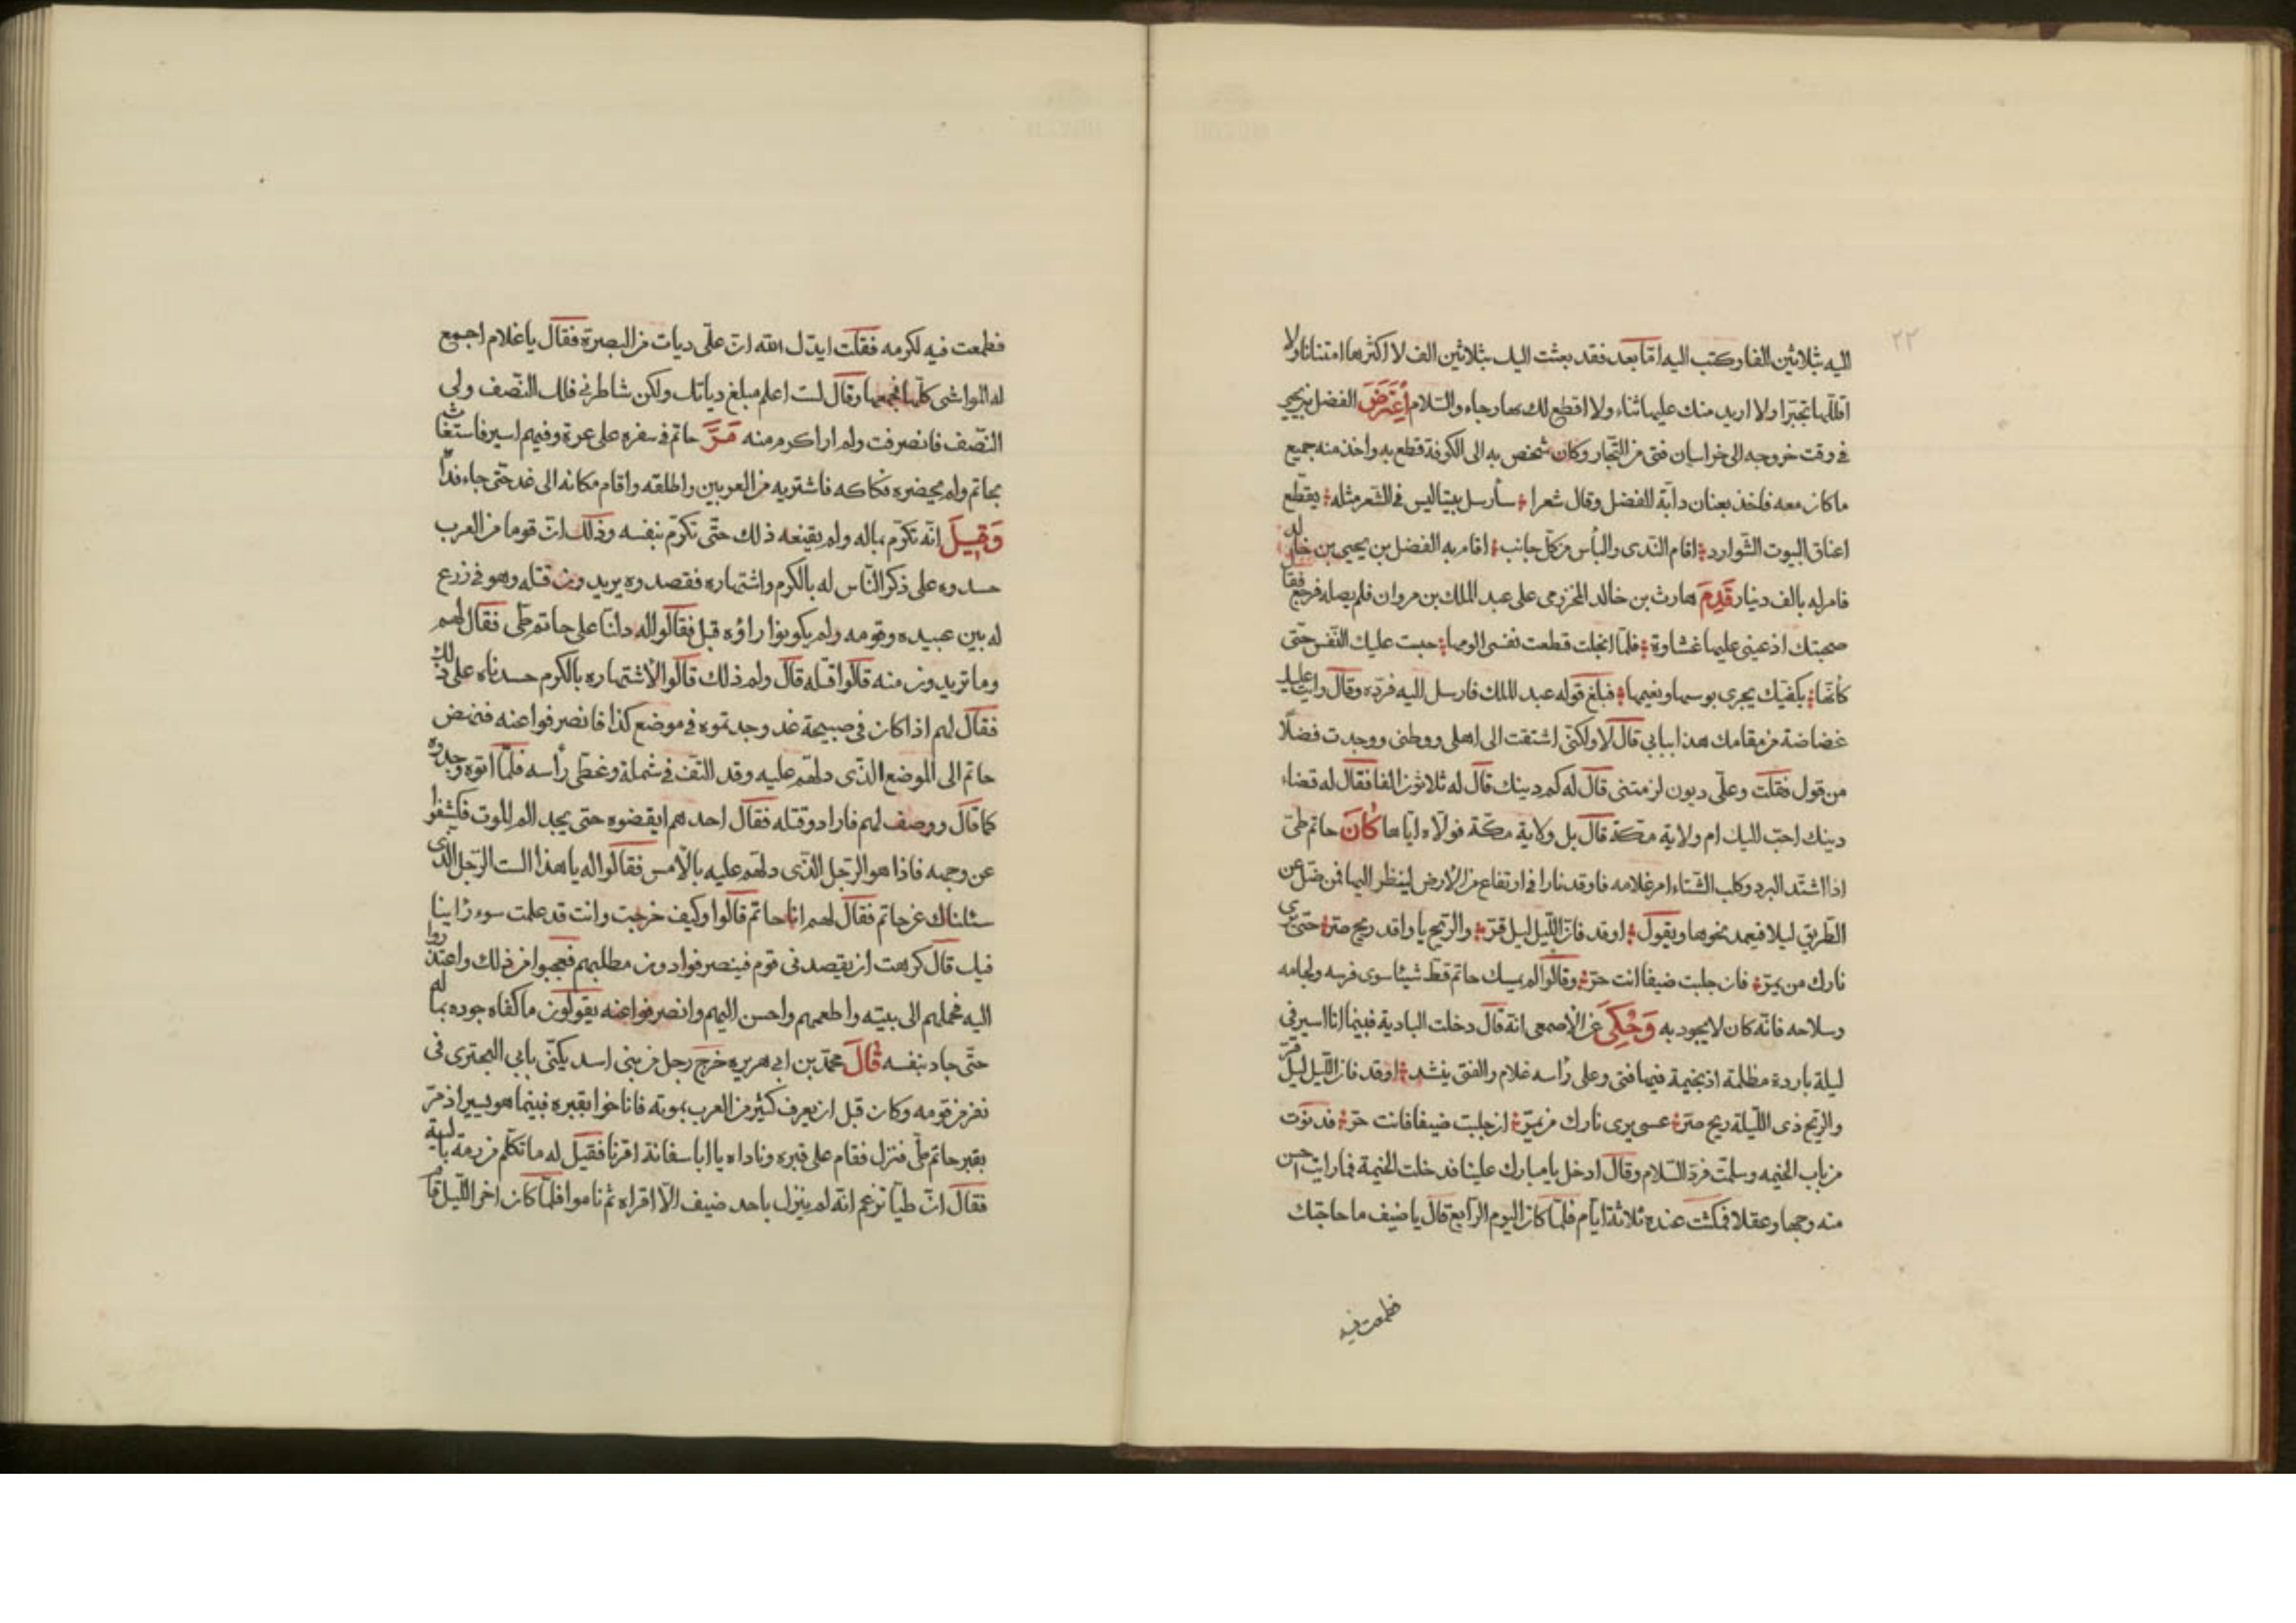 ٢٢
اليه بثلاثين الفا وكتب اليه امّا بعد فقد بعثت اليك بثلاثين الف لا اكثرها امتنانا ولا
اقللّها تجبّرا ولا اريد منك عليها ثناء ولا اقطع لك بها رجاء والسّلام أعترض الفضل بن يحيى
فى وقت خروجه الى خراسان فتى من التّجار وكان شخص به الى الكوفة قطع به واخذ منه جميع
ما كان معه فاخذ بعنان دابّة الفضل وقال شعرا سأرسل بيتا ليس فى الشّعر مثله يقطّع
اعناق البيوت الشّوارد اقام النّدى والبأس من كلّ جانب اقام به الفضل بن يحيى بن خالد
فامر له بالف دينار قدم حارث بن خالد المخزومى على عبد الملك بن مروان فلم يصله فرجع فقال
صحبتك اذ عينى عليها غشاوة فلمّا انجلت قطعت نفسى الومها حبت عليك النّفس حتّى
كأنّها بكفّيك يجرى بوسها ونعيمها فبلغ قوله عبد الملك فارسل اليه فردّه وقال رايت عليك
غضاضة من مقامك هذا ببابى قال لا ولكنّى اشتقت الى اهلى ووطنى ووجدت فضلا
من قول فقلت وعلّى ديون لزمتنى قال له كم دينك قال له ثلاثون الفا فقال له قضاء
دينك احبّ اليك ام ولاية مكّة قال بل ولاية مكّة فولّاه ايّاها كان حاتم طىّ
اذا اشتّد البرد وكلب الشّتاء امر غلامه فاوقد نارا فى ارتفاع من الأرض لينظر اليها فمن ضلّ عن
الطّريق ليلا فيعمد نحوها ويقول اوقد فانّ اللّيل ليل قرّ والرّيح يا واقد ريح صرّ حتّى يرى
نارك من يمرّ فان جلبت ضيفا انت حرّ وقالوا لم يمسك حاتم قطّ شيئا سوى فرسه ولجامه
وسلاحه فانّه كان لا يجود به وحكى عن الأصمعى انّه قال دخلت البادية فبينما انا اسير فى
ليلة باردة مظلمة اذ بخيمة فيها فتى وعلى رأسه غلام والفتى ينشد اوقد فانّ اللّيل ليل قرّ
والرّيح ذى اللّيلة ريح صرّ عسى يرى نارك من يمرّ ان جلبت ضيفا فانت حرّ فدنوت
من باب الخيمه وسلمّت فردّ السّلام وقال ادخل يا مبارك علينا فدخلت الخيمة فما رايت احسن
منه وجها وعقلا فمكثت عنده ثلاثة ايّام فلمّا كان اليوم الرّابع قال يا ضيف ما حاجتك
فطمعت فيه
فطمعت فيه لكرمه فقلت ايدّك الله انّ علّى ديات من البصرة فقال يا غلام اجمع
له المواشى كلّها فجمعها وقال لست اعلم مبلغ دياتك ولكن شاطرنى فلك النّصف ولى
النّصف فانصرفت ولم ار اكرم منه مرّ حاتم فى سفره على عرة وفيهم اسير فاستغاث
بحاتم ولم يحضره فكاكه فاشتريه من العربين واطلقه واقام مكانه الى غد حتّى جاء فداّ
وقيل انّه تكرّم بماله ولم يقنعه ذلك حتّى تكرّم بنفسه وذلك انّ قوما من العرب
حسدوه على ذكر النّاس له بالكرم واشتهاره فقصدوه يريدون قتله وهو فى زرع
له بين عبيده وقومه ولم يكونوا راؤه قبل فقالوا له دلنّا على حاتم طى فقال لهم
وما تريدون منه قالوا قتله قال ولم ذلك قالوا لأشتهاره بالكرم حسدناه على ذلك
فقال لهم اذا كان فى صبيحة غد وجدتموه فى موضع كذا فانصرفوا عنه فنهض
حاتم الى الموضع الذّى دلهّم عليه وقد التفّ فى شملة وغطّى رأسه فلمّا اتوه وجدوه
كما قال ووصف لهم فارادو قتله فقال احدهم ايقضوه حتى يجد الم الموت فكشفوا
عن وجهه فاذا هو الرّجل الذّى دلهّم عليه بالأمس فقالوا له يا هذا الست الرّجل الذّى
سئلناك عن حاتم فقال لهم انا حاتم قالوا وكيف خرجت وانت قد علمت سوء رأينا
فيك قال كرهت ان يقصدنى قوم فينصرفوا دون مطلبهم فعجبوا من ذلك واعتذروا
اليه فحملهم الى بيته واطعمهم واحسن اليهم وانصرفوا عنه يقولون ما كفاه جوده بماله
حتّى جاد بنفسه قال محمّد بن ابى هريره خرج رجل من بنى اسد يكنّى بابى البحترى فى
نفر من قومه وكان قبل ان يعرف كثير من العرب بموته فاناخوا بقبره فبينما هو يسير اذ مرّ
بقبر حاتم طّى فنزل فقام على قبره وناداه يا ابا سفانة اقرنا فقيل له ما تكلّم من رمة بالية
فقال انّ طيّا تزعم انّه لم ينزل به احد ضيف الّا اقراه ثم ناموا فلمّا كان اخر اللّيل قام